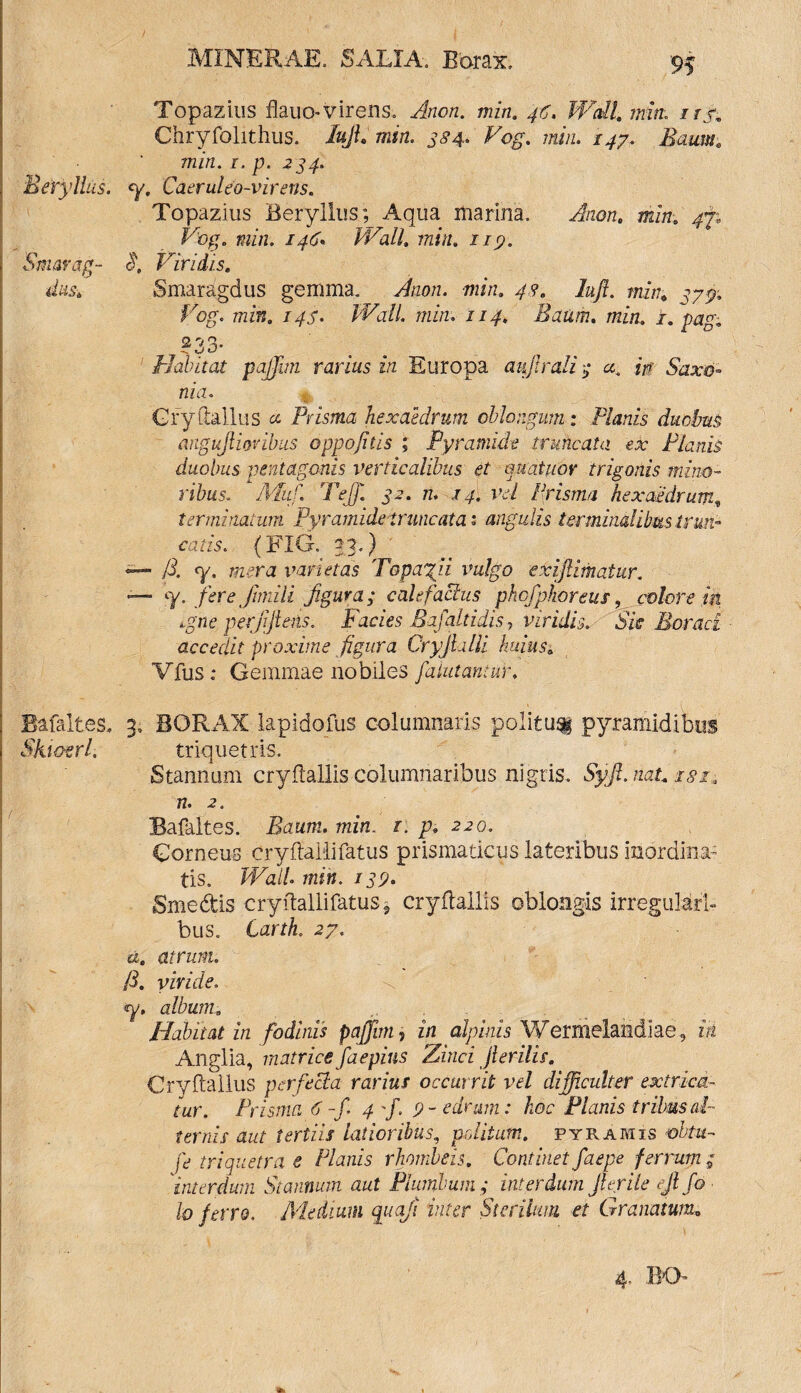 MINERAE. SALIA. Borax. 95
Topazius flauo-virens. Anon. min. 46. Wall. min. 115.
Chryſolithus. Iuſt. min. 384. Vog. min. 147. Baum.
min. 1. p. 234.
Beryllus. γ. Caeruleo-virens.
Topazius Beryllus; Aqua marina. Anon. min. 47.
Vog. min. 146. Wall. min. 119.
Smarag- δ. Viridis.
dus. Smaragdus gemma. Anon. min. 48. Iuſt. min. 379.
Vog. min. 145. Wall. min. 114. Baum. min. 1. pag.
233.
Habitat paſſim rarius in Europa auſtrali; α. in Saxo-
nia.
Cryſtallus α Prisma hexaëdrum oblongum: Planis duobus
anguſtioribus oppoſitis ; Pyramide truncata ex Planis
duobus pentagonis verticalibus et quatuor trigonis mino-
ribus. Muſ. Teſſ. 32. n. 14. vel Prisma hexaëdrum,
terminatum Pyramide truncata: angulis terminalibus trun-
catis. (FIG. 33.)
— β. γ. mera varietas Topazii vulgo exiſtimatur.
— γ. fere ſimili figura; calefactus phoſphoreus, colore in
igne perſiſtens. Facies Baſaltidis, viridis. Sic Boraci
accedit proxime figura Cryſtalli huius.
Vſus: Gemmae nobiles ſalutantur.
Baſaltes. 3. BORAX lapidoſus columnaris politus pyramidibus
Skioerl. triquetris.
Stannum cryſtallis columnaribus nigris. Syſt. nat. 181.
n. 2.
Baſaltes. Baum. min. 1. p. 220.
Corneus cryſtalliſatus prismaticus lateribus inordina-
tis. Wall. min. 139.
Smectis cryſtalliſatus, cryſtallis oblongis irregulari-
bus. Carth. 27.
α. atrum.
β. viride.
γ. album.
Habitat in fodinis paſſim, in alpinis Wermelandiae, in
Anglia, matrice ſaepius Zinci ſterilis.
Cryſtallus perfecta rarius occurrit vel difficulter extrica-
tur. Prisma 6 -ſ. 4 -ſ. 9 - edrum: hoc Planis tribus al-
ternis aut tertiis latioribus, politum. PYRAMIS obtu-
ſe triquetra e Planis rhombeis. Continet ſaepe ferrum;
interdum Stannum aut Plumbum; interdum ſterile eſt ſo
lo ferro. Medium quaſi inter Sterilum et Granatum.
4. BO-